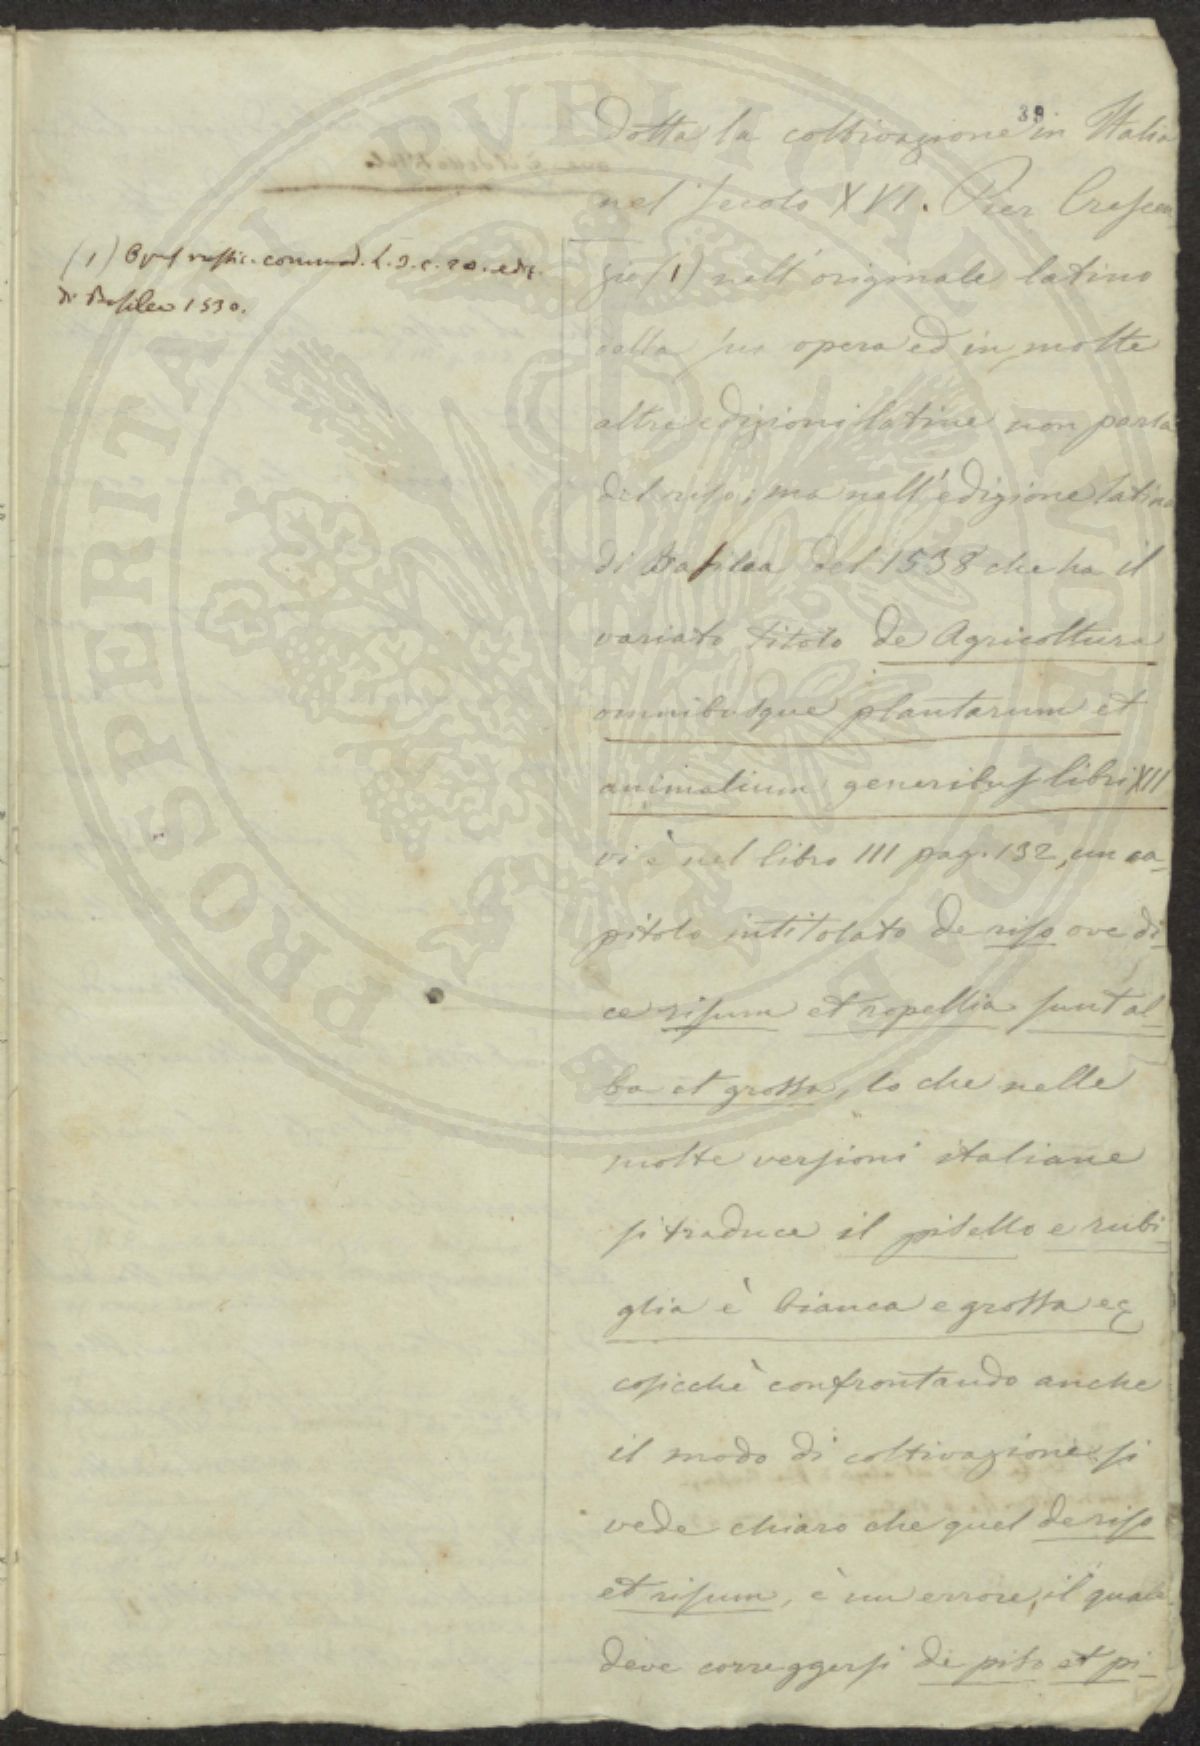 39
dotta la coltivazione in Italia
nel secolo XVI. Pier Crescen
zio (1) nell'originale latino
della sua opera ed in molte
altre edizioni latine non parla
del riso; ma nell'edizione latina
di Basilea del 1538 che ha il
variato titolo de Agricoltura
omnibusque plantarum et
animalium generibus libri XII
vi è nel libro III pag. 132, un ca-
pitolo intitolato de riso ove di-
ce risum et ropellia sunt al-
ba et grossa, lo che nelle
molte versioni italiane
si traduce il pisello e rubi-
glia è bianca e grossa ec
cosicchè confrontando anche
il modo di coltivazione si
vede chiaro che quel de riso
et risum, è un errore, il quale
deve correggersi de piso et pi-
(1) Opus rustic. commod. L. 3. c. 20. ediz.
di Basilea 1530.
PROSPERITATI PVBLICAE